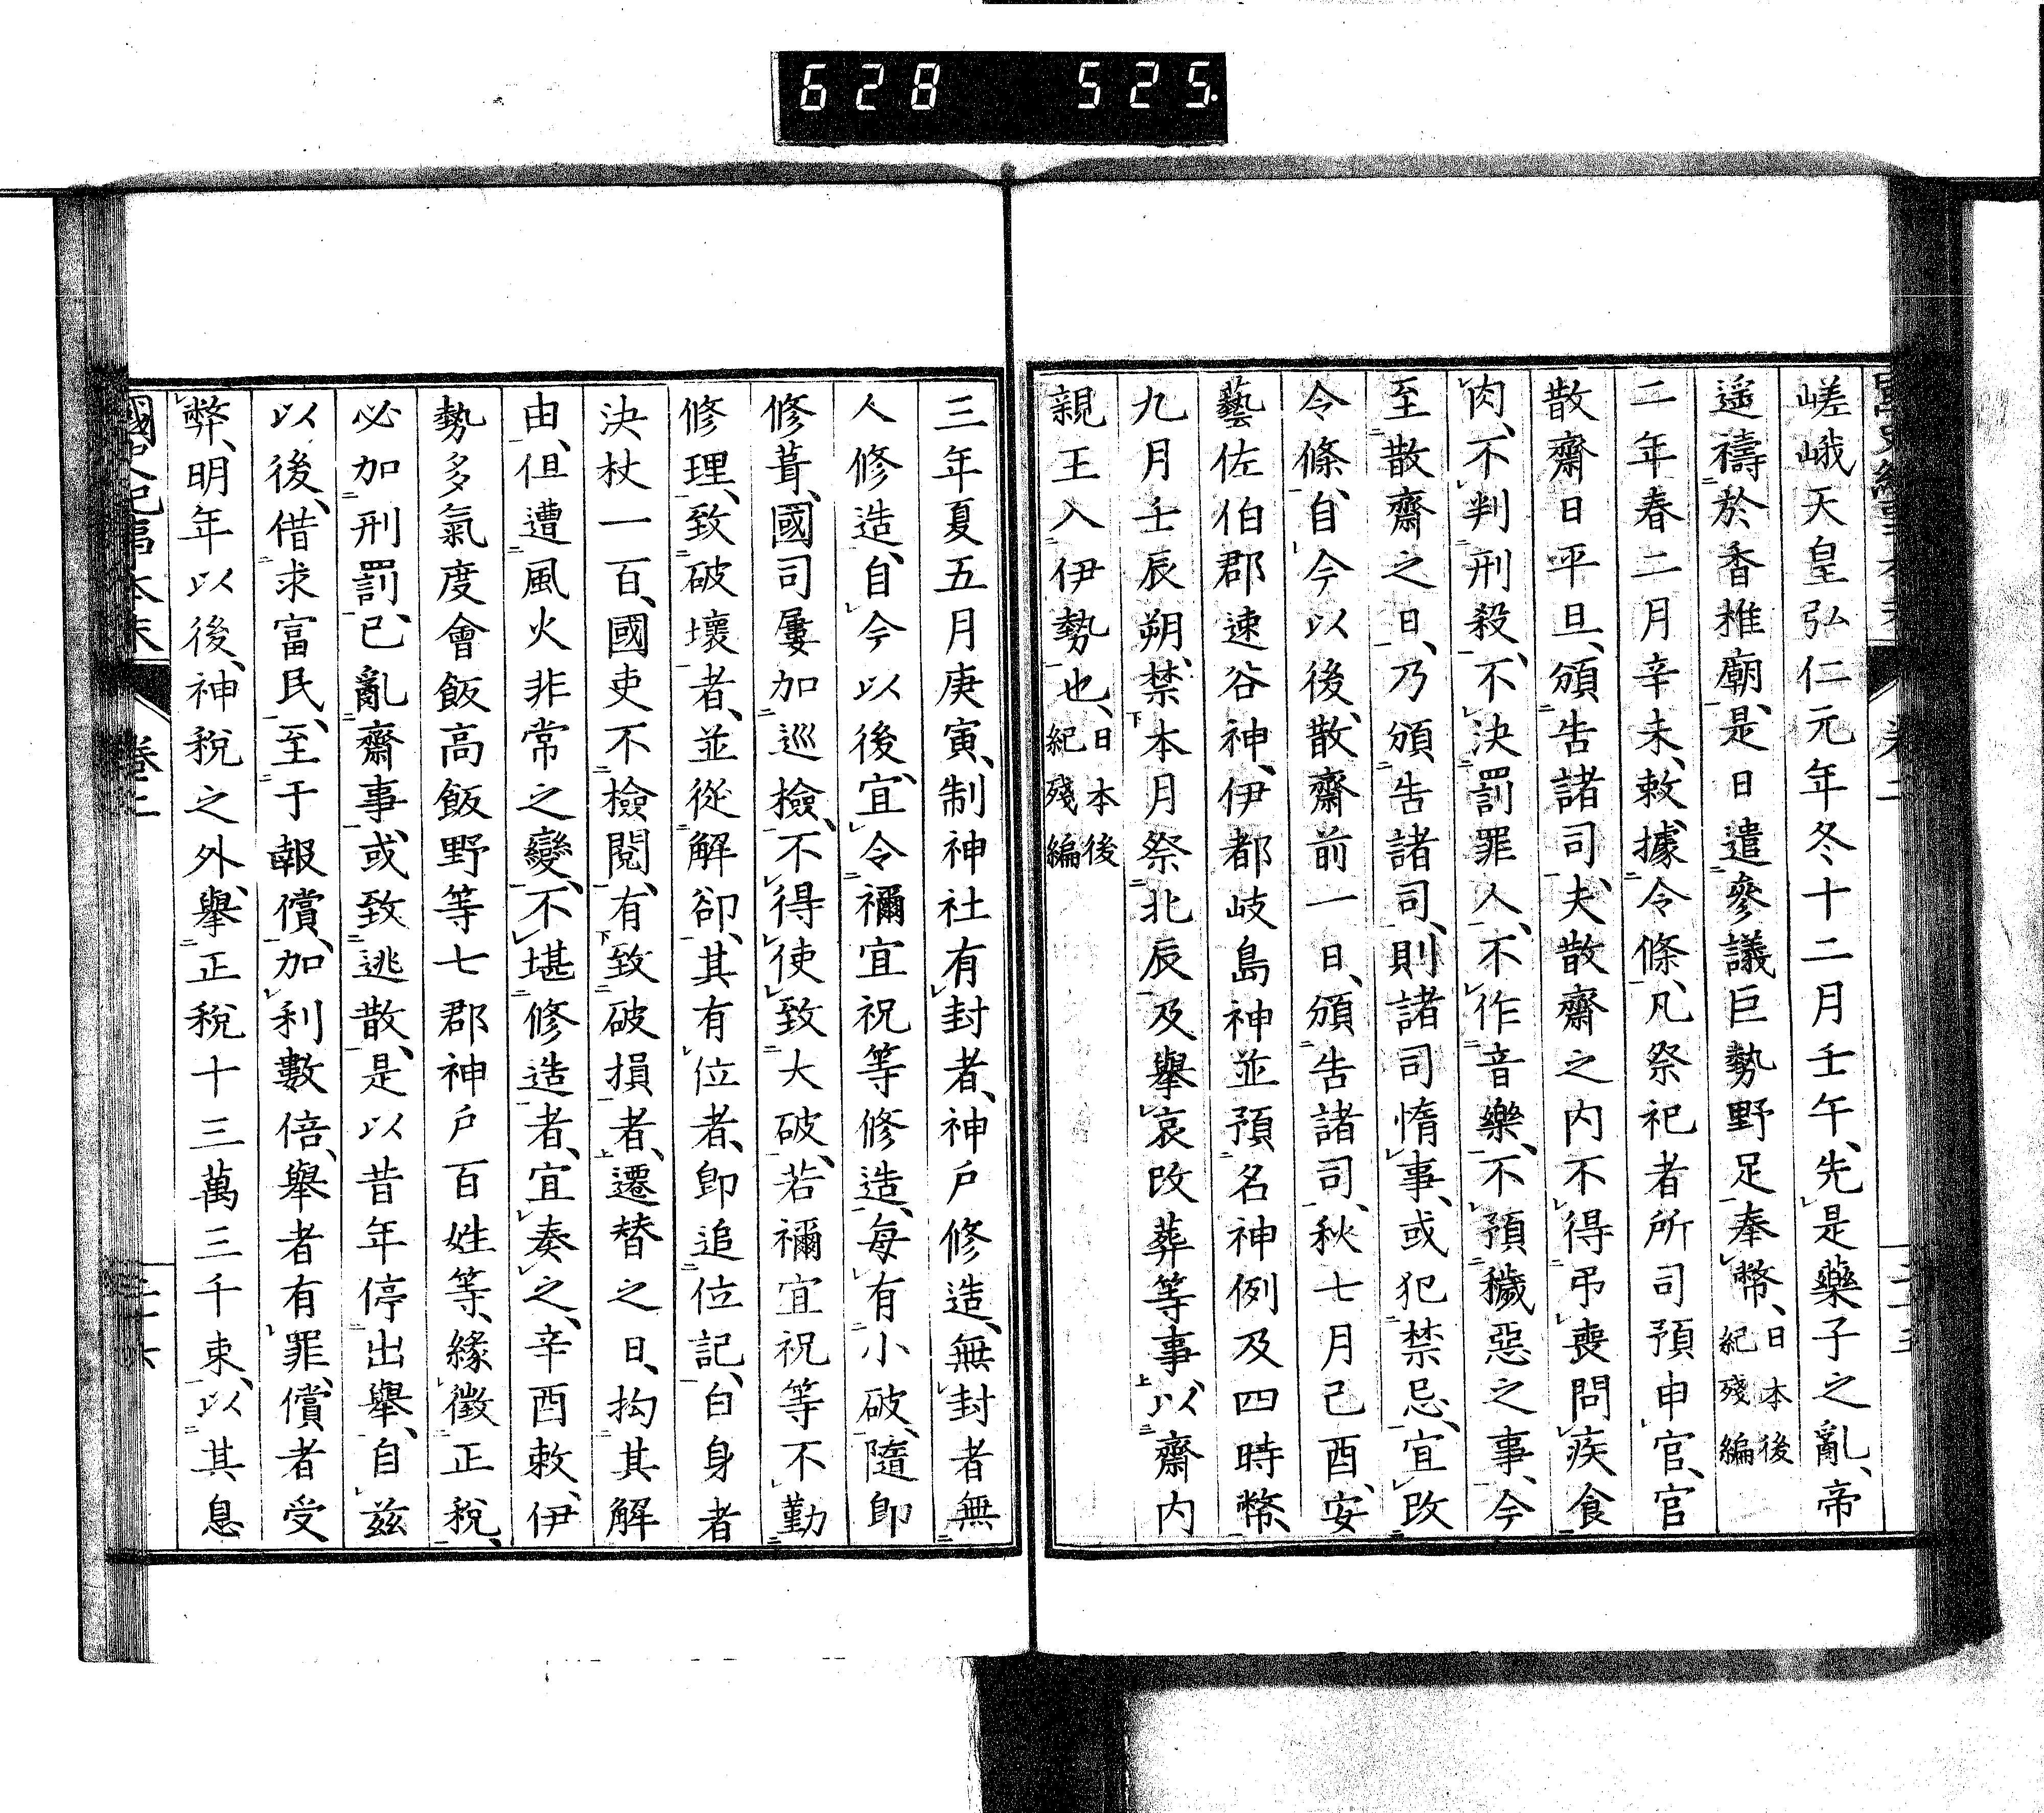 628 525
嵯峨天皇弘仁元年冬十二月壬午、先是藥子之亂、帝
遥禱於香椎廟、是日遣參議巨勢野足奉幣、日本後紀殘編
二年春二月辛未、敕、據令條、凡祭祀者所司預申官、官
散齋日平旦、頒告諸司、夫散齋之内不得弔喪問疾食
肉、不判刑殺、不決罰罪人、不作音樂、不預穢惡之事、今
至散齋之日、乃頒告諸司、則諸司惰事、或犯禁忌、宜改
令條、自今以後、散齋前一日、頒告諸司、秋七月己酉、安
藝佐伯郡速谷神、伊都岐島神並預名神例及四時幣、
九月壬辰朔、禁本月祭北辰及擧哀改葬等事、以齋内
親王入伊勢也、日本後紀殘編
三年夏五月庚寅、制神社有封者、神戶修造、無封者無
人修造、自今以後、宜令禰宜祝等修造、每有小破、隨即
修葺、國司屢加巡檢、不得使致大破、若禰宜祝等不勤
修理、致破壞者、並從解卻、其有位者、即追位記、白身者
決杖一百、國吏不檢閲、有致破損者、遷替之日、拘其解
由、但遭風火非常之變、不堪修造者、宜奏之、辛酉敕、伊
勢多氣度會飯高飯野等七郡神戶百姓等、緣徵正税、
必加刑罰、已亂齋事、或致逃散、是以昔年停出擧、自茲
以後、借求富民、至于報償、加利數倍、擧者有罪、償者受
弊、明年以後、神税之外、擧正税十三萬三千束、以其息
國史紀事本末 卷三